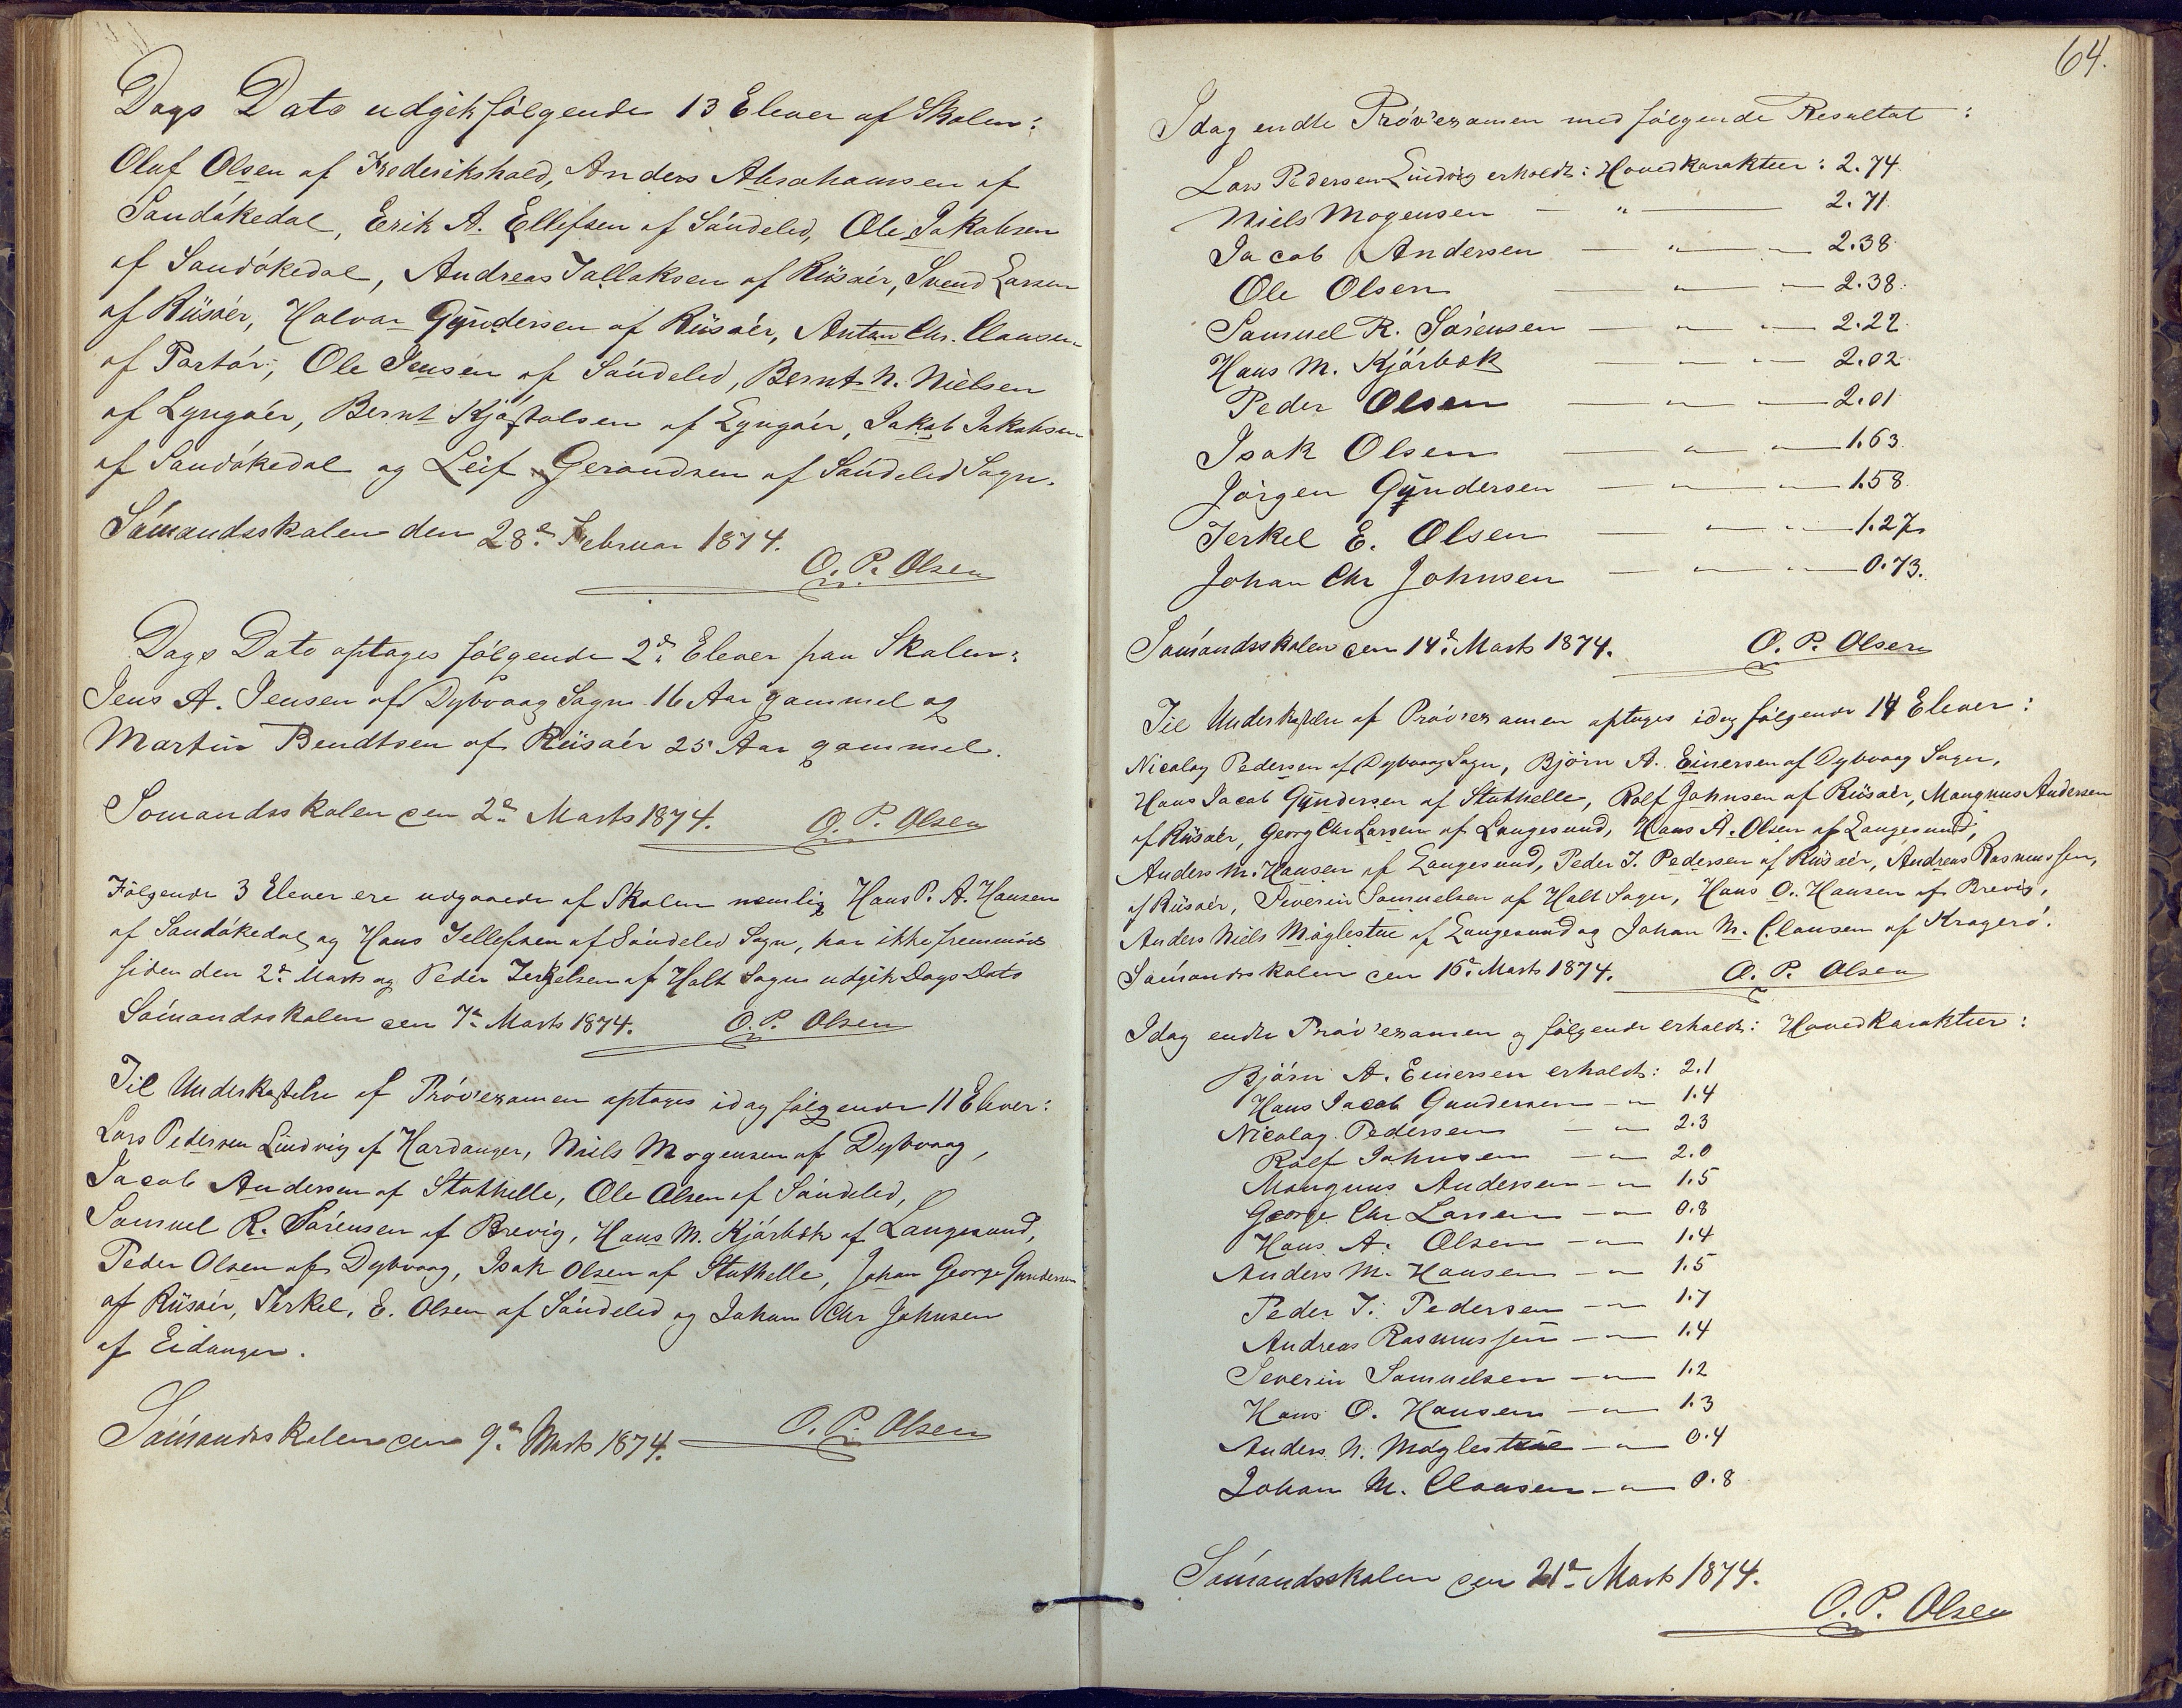 Dags Dato udgik følgende 13 Elever af Skolen:
Oluf Olsen af Frederikshald, Anders Abrahamsen af
Sandökedal, Erik A. Ellefsen af Söndeled, Ole Jakobsen
af Sandökedal, Andreas Tallaksen af Riisöer, Svend Larsen
af Riisöer, Halvar Gundersen af Riisöer, Anton Chr. Clausen
af Portör, Ole Jensen af Söndeled, Bernt N. Nielsen
af Lyngöer, Bernt Kjöstolsen af Lyngöer, Jakob Jakobsen
af Sandökedal og Leif Gerandsen af Söndeled Sogn.
Sömandsskolen den 28de Februar 1874.
O. P. Olsen
Dags Dato optages følgende 2de Elever paa Skolen:
Jens A. Jensen af Dybvaag Sogn 16 Aar gammel og
Martin Bendtsen af Riisöer 25 Aar gammel.
Somandsskolen den 2den Marts 1874. O. P. Olsen
Følgende 3 Elever ere udgaaede af Skolen nemlig Hans P. A. Hansen
af Sandökedal og Hans Tellefsen af Söndeled Sogn, har ikke fremmödt
siden den 2de Marts og Peder Terkelsen af Holt Sogn udgik Dags Dato
Sömandsskolen den 7de Marts 1874. O. P. Olsen
Til Underkastelse af Pröv'examen optages idag følgende 11 Elever:
Lars Pedersen Lindvig af Hardanger, Niels Mogensen af Dybvaag,
Jacob Andersen af Stathelle, Ole Olsen af Söndeled,
Samuel R. Sörensen af Brevig, Hans M. Kjörbok af Langesund,
Peder Olsen af Dybvaag, Isak Olsen af Stathelle, Johan George Gundersen
af Riisöer, Terkel, E. Olsen af Söndeled og Johan Chr Johnsen
af Eidanger.
Sömandsskolen den 9de Marts 1874. O. P. Olsen
64.
Idag endte Pröv'examen med følgende Resultat:
Lars Pedersen Lindvig erholdt: Hovedkarakteer: 2.74
Niels Mogensen — " — 2.71
Jacob Andersen — " — 2.38
Ole Olsen — " — 2.38
Samuel R. Sörensen — " — 2.22
Hans M. Kjörbok — " — 2.02
Peder Olsen — " — 2.01
Isak Olsen — " — 1.63
Jörgen Gundersen — " — 1.58
Terkel E. Olsen — " — 1.27
Johan Chr Johnsen — " — 0.73.
Sömandsskolen den 14de Marts 1874. O. P. Olsen
Til Underkastelse af Pröv'examen optages idag følgende 14 Elever:
Nicolay Pedersen af Dybvaag Sogn, Björn A. Einersen af Dybvaag Sogn,
Hans Jacob Gundersen af Stathelle, Rolf Johnsen af Riisöer, Mangnus Andersen
af Riisöer, Georg Chr Larsen af Langesund, Hans A. Olsen af Langesund,
Anders M. Hansen af Langesund, Peder T. Pedersen af Riisöer, Andreas Rasmussen,
af Riisöer, Severin Samuelsen af Holt Sogn, Hans O. Hansen af Brevig,
Anders Niels Möglestue af Langesund og Johan M. Clausen af Kragerö.
Sömandsskolen den 16de Marts 1874. O. P. Olsen
Idag endte Pröv'examen og følgende erholdt: Hovedkarakteer:
Björn A. Einersen erholdt: 2.1
Hans Jacob Gundersen — " — 1.4
Nicolay Pedersen — " — 2.3
Rolf Johnsen — " — 2.0
Mangnus Andersen — " — 1.5
George Chr Larsen — " — 0.8
Hans A. Olsen — " — 1.4
Anders M. Hansen — " — 1.5
Peder T. Pedersen — " — 1.7
Andreas Rasmussen — " — 1.4
Severin Samuelsen — " — 1.2
Hans O. Hansen — " — 1.3
Anders N. Möglestue — " — 0.4
Johan M. Clausen — " — 0.8
Sömandsskolen den 21de Marts 1874.
O. P. Olsen